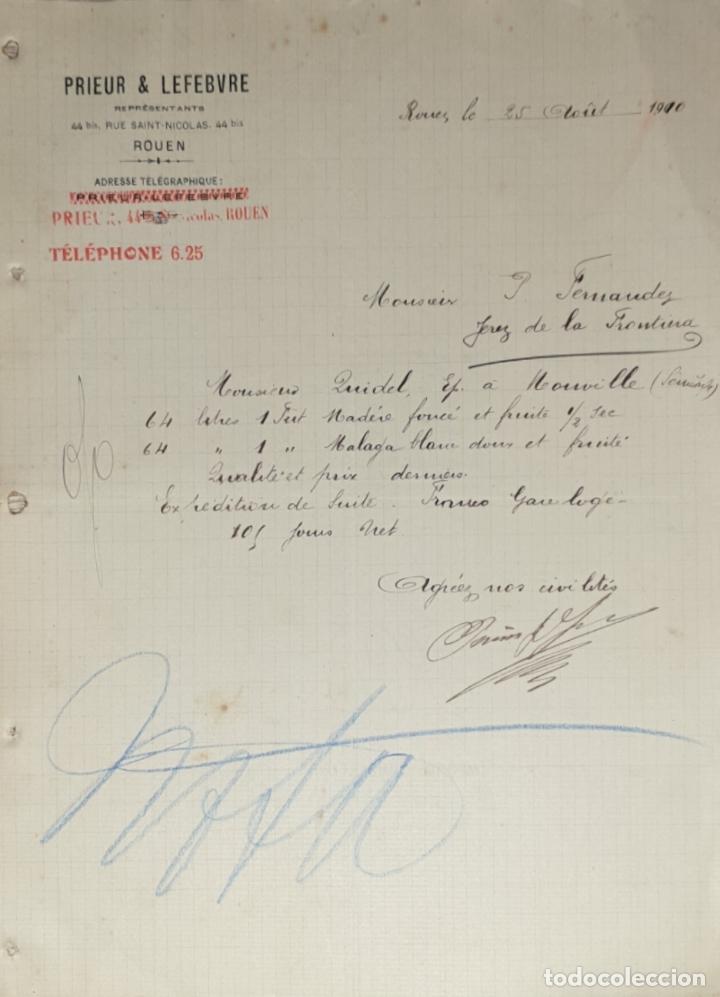 PRIEUR & LEFEBVRE
REPRÉSENTANTS
44 bis, RUE SAINT-NICOLAS, 44 bis
ROUEN
ADRESSE TÉLÉGRAPHIQUE:
PRIEUR-LEFEBVRE
PRIEUR, 44 Nicolas, ROUEN
TÉLÉPHONE 6.25
Rouen le 25 Août 1910
Monsieur P. Fernandez
Jerez de la Frontera
Monsieur Quidel, Ep. à Monville
64 litres 1 Fut Madére foncé et fruité 1/2 sec
64 " 1 " Malaga blanc doux et fruité
Qualité et prix derniers.
Expédition de Suite. Franco Gare logé-
105 jours Net
Agréez nos civilités
Nota
todocoleccion